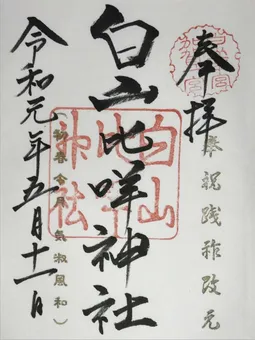 奉拝
奉祝践祚改元
白山比咩神社
白山
神社
(初春令月 気淑風和)
令和元年五月十一日